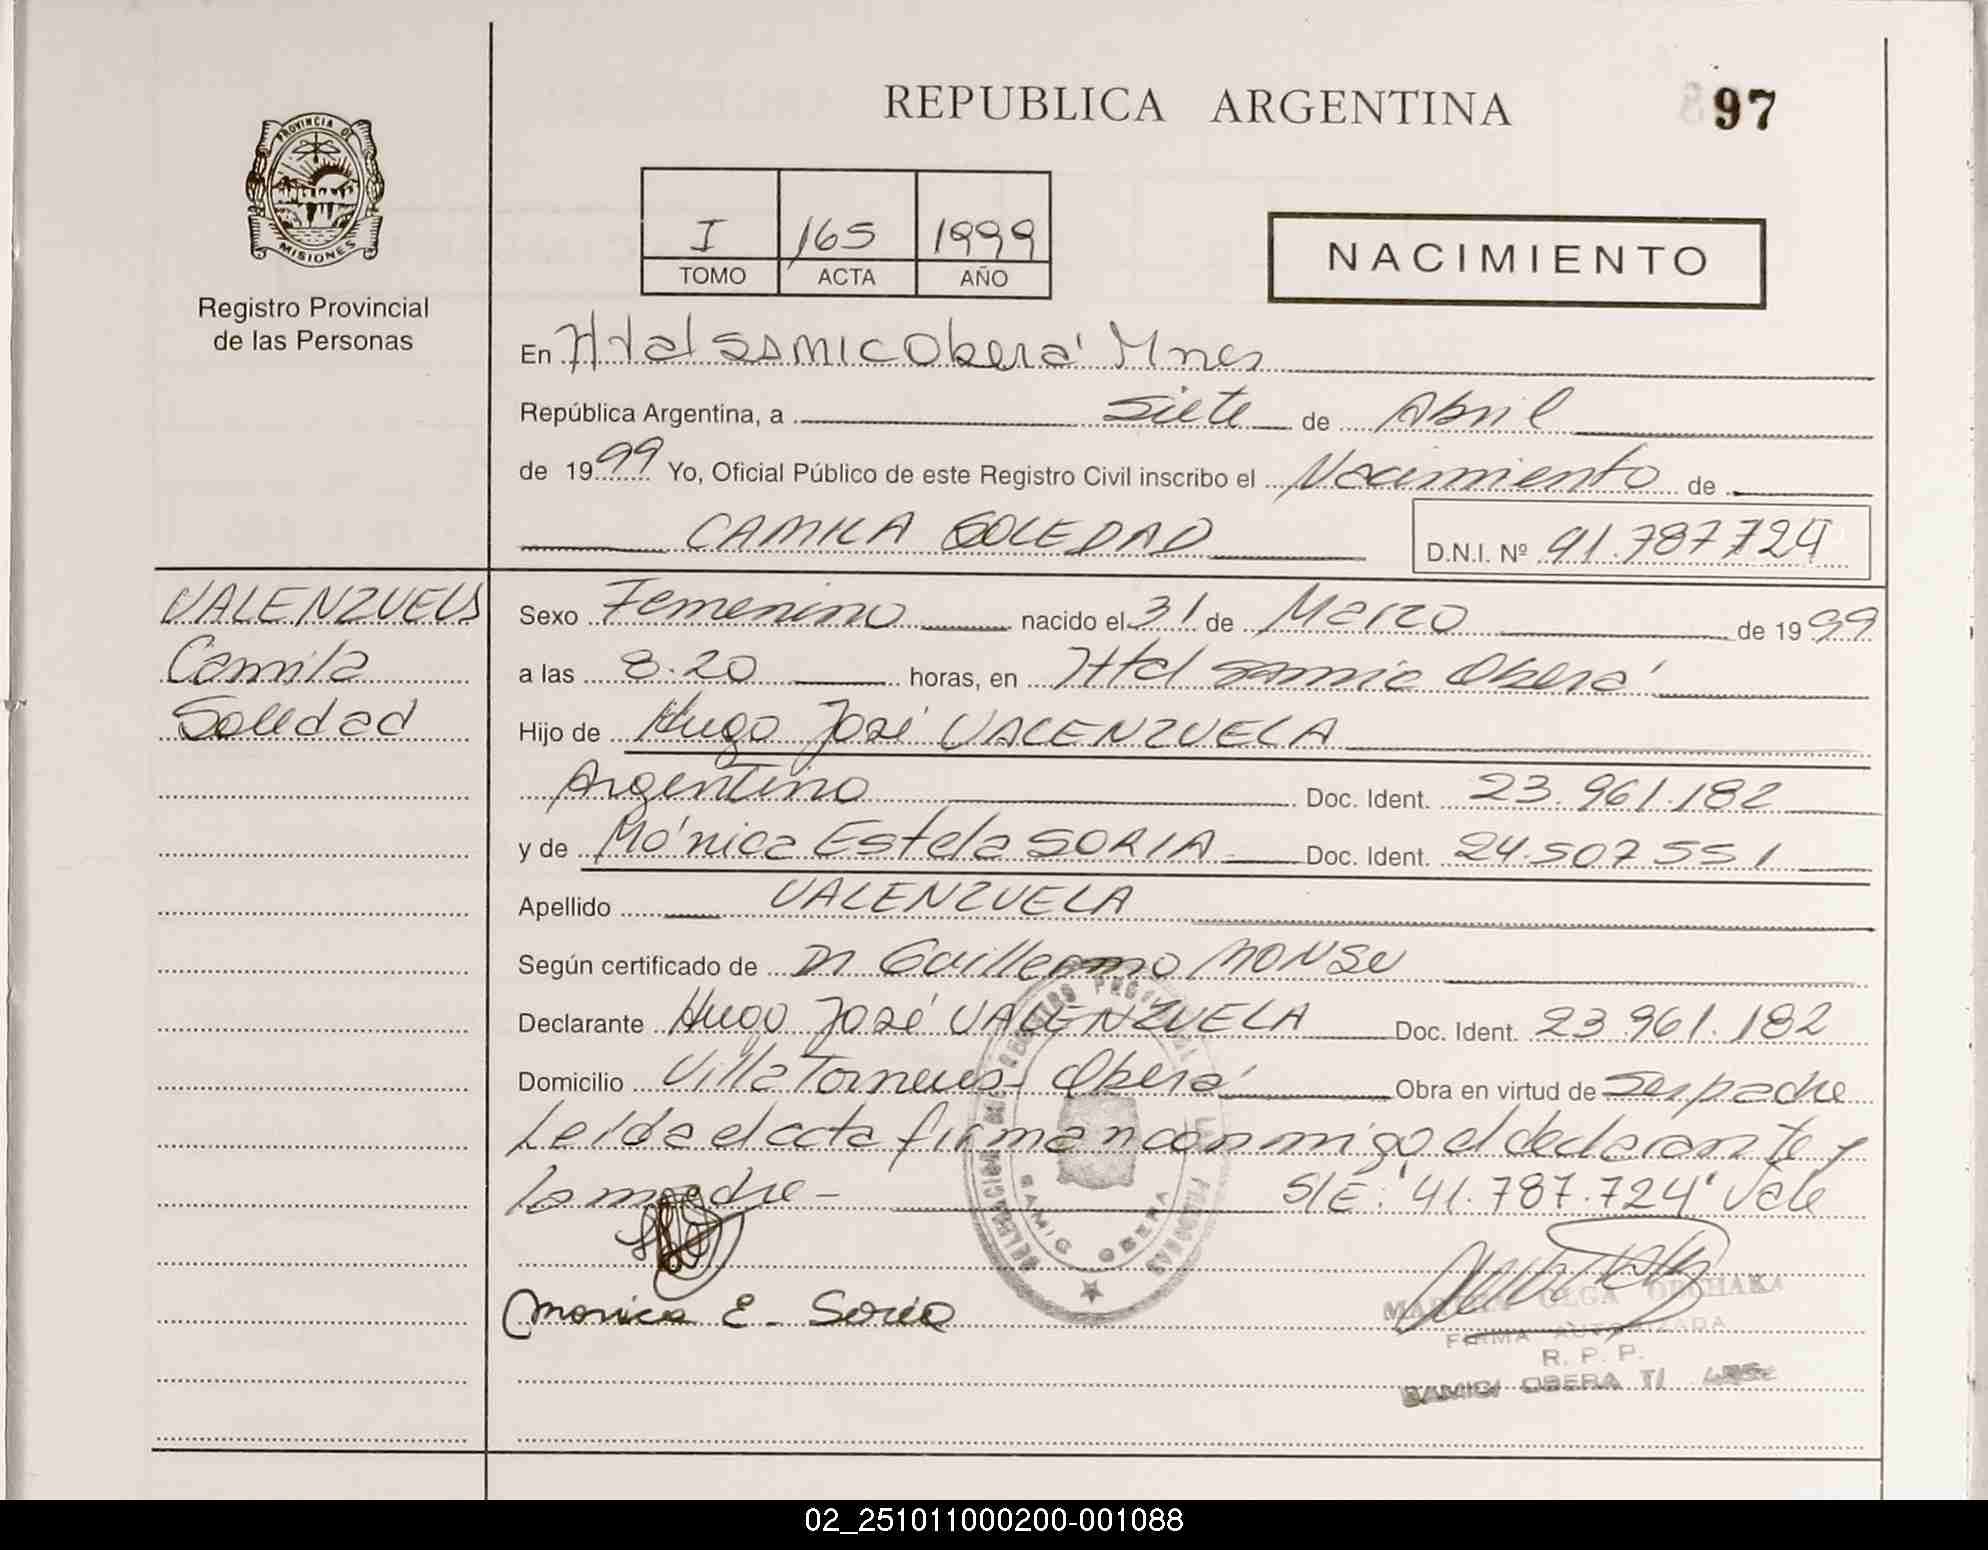 REPUBLICA ARGENTINA
97
PROVINCIA DE
MISIONES
Registro Provincial
de las Personas
I 165 1999
TOMO ACTA AÑO
NACIMIENTO
En Htal SAMIC Oberá Mnes
República Argentina, a siete de Abril
de 1999 Yo, Oficial Público de este Registro Civil inscribo el Nacimiento de
CAMILA SOLEDAD
D.N.I. Nº 91.787724
VALENZUELA
Camila
Soledad
Sexo Femenino nacido el 31 de Marzo de 1999
a las 8.20 horas, en Htal samic Oberá
Hijo de Hugo José VALENZUELA
Argentino Doc. Ident. 23.961.182
y de Mónica Estela SORIA Doc. Ident. 24.507551
Apellido VALENZUELA
Según certificado de Dr Guillermo MONSU
Declarante Hugo José VALENZUELA Doc. Ident. 23.961.182
Domicilio Villa Torneus - Oberá Obra en virtud de ser padre
Leída el acta firman conmigo el declarante y
la madre - S/E: "41.787.724" Vale
monica E. Soria
SAMIC OBERA
OLGA
FIRMA AUTORIZADA
R. P. P.
SAMIC OBERA
02_251011000200-001088